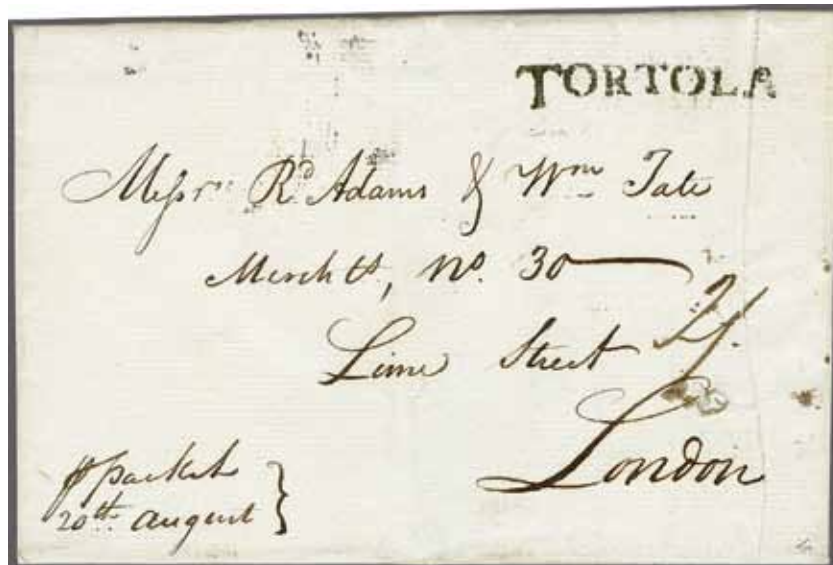 TORTOLA
Messrs Rd Adams & Wm Tate
Merchts, No. 30
Lime Street
London
p packet
20th august